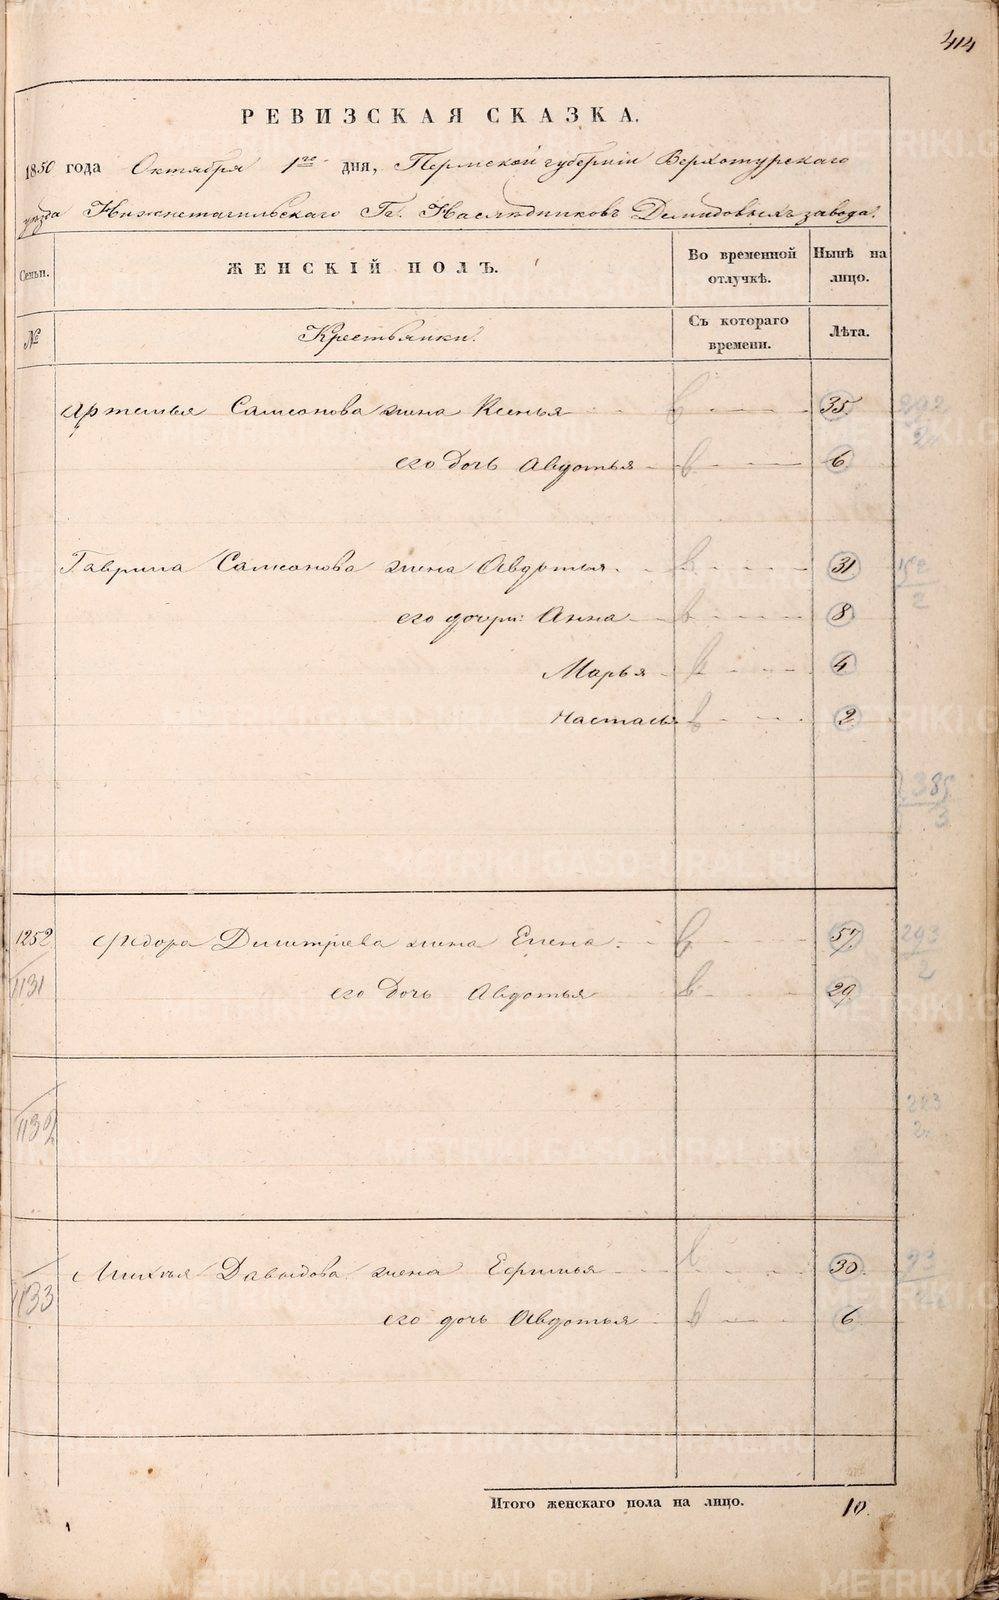 414
РЕВИЗСКАЯ СКАЗКА.
1850 года Октября 1го дня, Пермской губерніи Верхотурскаго
уѣзда Нижнетагильскаго Гг. Наслѣдниковъ Демидовыхъ завода.
Семьи. ЖЕНСКІЙ ПОЛЪ. Во временной отлучкѣ. Нынѣ на лицо.
№ Крестьянки. Съ котораго времени. Лѣта.
Артемья Самсонова жена Ксенья 35.
его дочь Авдотья 6
Гаврила Самсонова жена Авдотья 31
его дочери: Анна 8
Марья 4
Настасья 2
385
3
1252 Ѳедора Дмитріева жена Елена 57.
293
2
1131 его дочь Авдотья 29
1132
1133 Михѣя Давыдова жена Ефимья 30.
его дочь Авдотья 6
Итого женскаго пола на лицо. 10.
METRIKI.GASO-URAL.RU